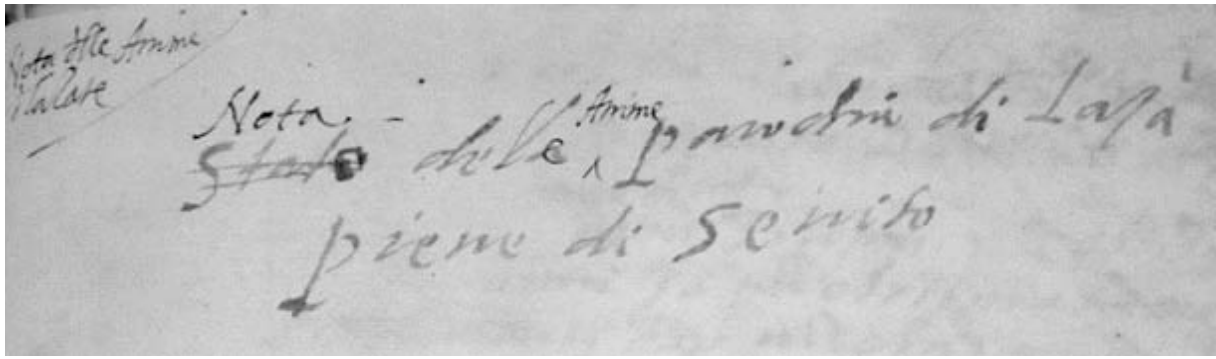 Nota delle Anime
Malate
Nota
Stato delle Anime parochia di Lasa
piene di Senito